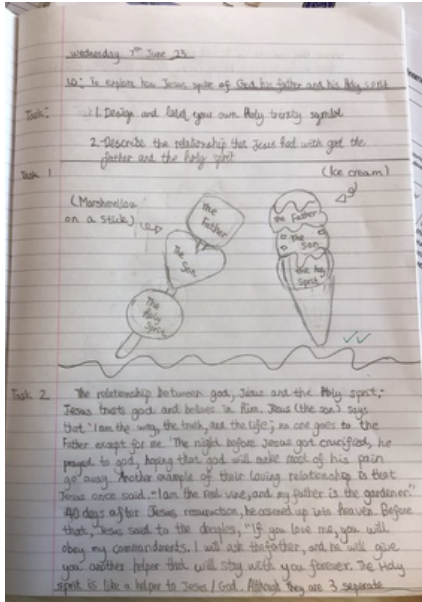 Wednesday 7th June 23
LO: To explore how Jesus spoke of God his father and his Holy sprit
Task: 1. Design and label your own Holy trinity symbol
2. Describe the relationship that Jesus had with god the
father and the holy sprit
Task 1
(Ice cream)
(Marshmellow
on a stick)
the
Father
The
Son
The
Holy
Sprit
the Father
the
Son
the holy
Sprit
Task 2 The relationship between god, Jesus and the Holy sprit;
Jesus trusts god and belives in him. Jesus (the son) says
that "I am the way, the truth, and the life; no one goes to the
Father except for me. The night before Jesus got crucified, he
prayed to god, hoping that god will make most of his pain
go away. Another example of their loving relationship is that
Jesus once said. "I am the real vine, and my father is the gardener."
40 days after Jesus resurrection, he ascened up into heaven. Before
that, Jesus said to the deciples, "If you love me, you will
obey my commandments. I will ask the father, and he will give
you another helper that will stay with you forever. The Holy
sprit is like a helper to Jesus / God. Although they are 3 seperate